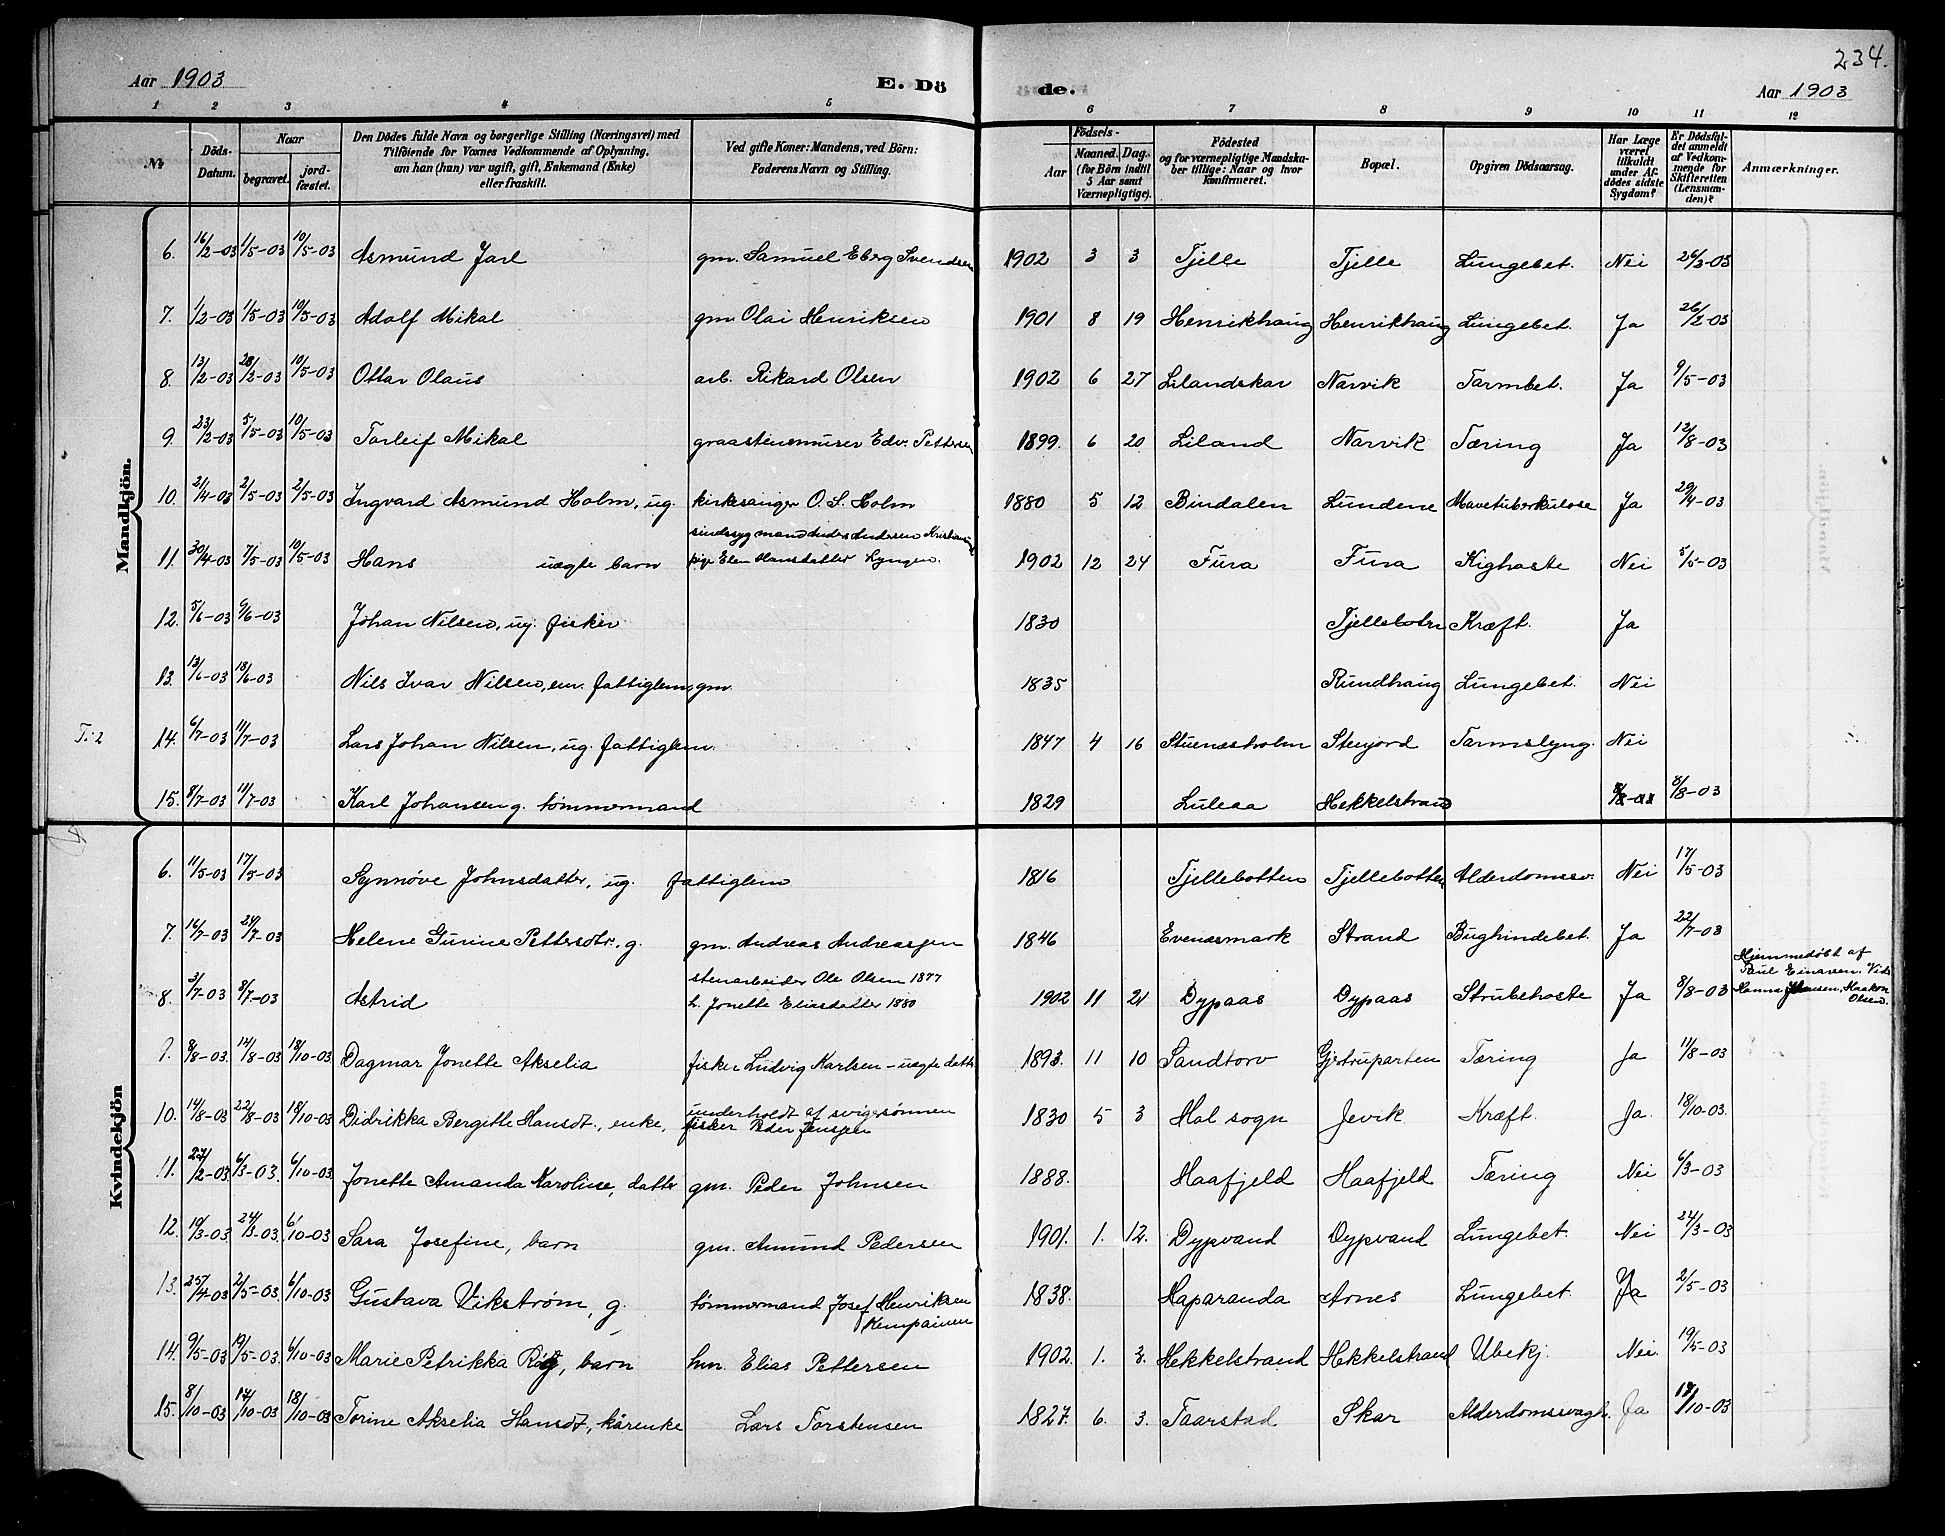 234.
Aar 1903 E. Döde. Aar 1903
1 2 3 4 5 6 7 8 9 10 11 12
№ Döds-Datum. Naar begravet. jordfæstet. Den Dödes fulde Navn og borgerlige Stilling (Næringsvei) med Tilföiende for Voxnes Vedkommende af Oplysning, om han (hun) var ugift, gift, Enkemand (Enke) eller fraskilt. Ved gifte Koner: Mandens, ved Börn: Faderens Navn og Stilling. Födsels- Aar Maaned. Dag. (for Börn indtil 5 Aar samt Værnepligtige). Födested og for værnepligtige Mandskaber tillige: Naar og hvor konfirmeret. Bopæl. Opgiven Dödsaarsag. Har Læge været tilkaldt under Afdödes sidste Sygdom? Er Dödsfaldet anmeldt af Vedkommende for Skifteretten (Lensmanden)? Anmærkninger.
Mandkjön.
6. 16/2-03 1/5-03 10/5-03 Asmund Jarl gm. Samuel Eberg Svendsen 1902 3 3 Tjelle Tjelle Lungebet. Nei 26/3-03
7. 1/2-03 1/5-03 10/5-03 Adolf Mikal gm. Olai Henriksen 1901 8 19 Henrikhaug Henrikhaug Lungebet. Ja 26/2-03
8. 13/2-03 28/2-03 10/5-03 Ottar Olaus arb. Rikard Olsen 1902 6 27 Lilandskar Narvik Tarmbet. Ja 9/5-03
9. 23/2-03 5/5-03 10/5-03 Torleif Mikal graastensmurer Edv. Pettersen 1899. 6 20 Liland Narvik Tæring Ja 12/8-03
10. 21/4-03 2/5-03 2/5-03 Ingvard Asmund Holm, ug. kirkesanger O. S. Holm 1880 5 12 Bindalen Lundene Mavetuberkulose Ja 29/4-03
11. 30/4-03 7/5-03 10/5-03 Hans uægte barn sindssyg mand Anders Andersen
pige Elen Hansdatter Lyngen. 1902 12 24 Fura Fura Kighoste Nei 5/5-03
12. 5/6-03 6/6-03 Johan Nilsen, ug. fisker 1830 Tjellebotn Kræft. Ja
13. 13/6-03 18/6-03 Nils Ivar Nilsen, em. fattiglem, gm. 1835 Rundhaug Lungebet. Nei
T. 2 14. 6/7-03 11/7-03 Lars Johan Nilsen, ug. fattiglem. 1847 4 16 Stuenesholm Stenjord Tarmslyng. Nei
15. 8/7-03 11/7-03 Karl Johansen g. tømmermand 1829 Luleaa Hekkelstrand 8/8-03
Kvindekjön
6. 11/5-03 17/5-03 Synnøve Johnsdatter, ug. fattiglem 1816 Tjellebotten Tjellebotten Alderdomssv. Nei 17/5-03
7. 16/7-03 24/7-03 Helene Gurine Pettersdtr. g. gm. Andreas Andreassen 1846 Evenæsmark Strand Bughindebet. Ja 22/7-03
8. 3/7-03 8/7-03 Astrid stenarbeider Ole Olsen 1877
h. Jonette Eliasdatter 1880 1902 11 21 Dypaas Dypaas Strubehoste Ja 8/8-03 Hjemmedøbt af
Paul Einarsen. Vid:
Hanna Johansen, Haakon
Olsen.
9. 8/8-03. 14/8-03 18/10-03 Dagmar Jonette Akselia fisker Ludvig Karlsen - uægte datter 1893. 11 10 Sandtorv Gjstruparten Tæring Ja 11/8-03
10. 14/8-03 22/8-03 18/10-03 Didrikka Bergitte Hansdt., enke, underholdt af svigersønnen
fisker Peder Jensen 1830 5 3 Hol sogn Jevik Kræft. Ja. 18/10-03.
11. 27/2-03 6/3-03. 6/10-03 Jonette Amanda Karoline, datter gm. Peder Johnsen 1888. Haafjeld Haafjeld Tæring Nei 6/3-03
12. 19/3-03. 24/3-03. 6/10-03 Sara Josefine, barn gm. Amund Pedersen 1901. 1. 12. Dypvand Dypvand Lungebet. Nei 24/3-03
13. 25/4-03 2/5-03. 6/10-03 Gustava Vikstrøm, g. tømmermand Josef Henriksen
Kempainen 1838. Haparanda Arnes Lungebet. Ja 2/5-03
14. 9/5-03 19/5-03. 6/10-03 Marie Petrikka, barn hm. Elias Pettersen 1902. 1. 3. Hekkelstrand Hekkelstrand Ubekj. Nei. 19/5-03
15. 8/10-03 17/10-03 18/10-03 Torine Akselia Hansdt, kårenke Lars Torstensen 1827. 6. 3. Taarstad Skar Alderdomssvagh. Ja 17/10-03